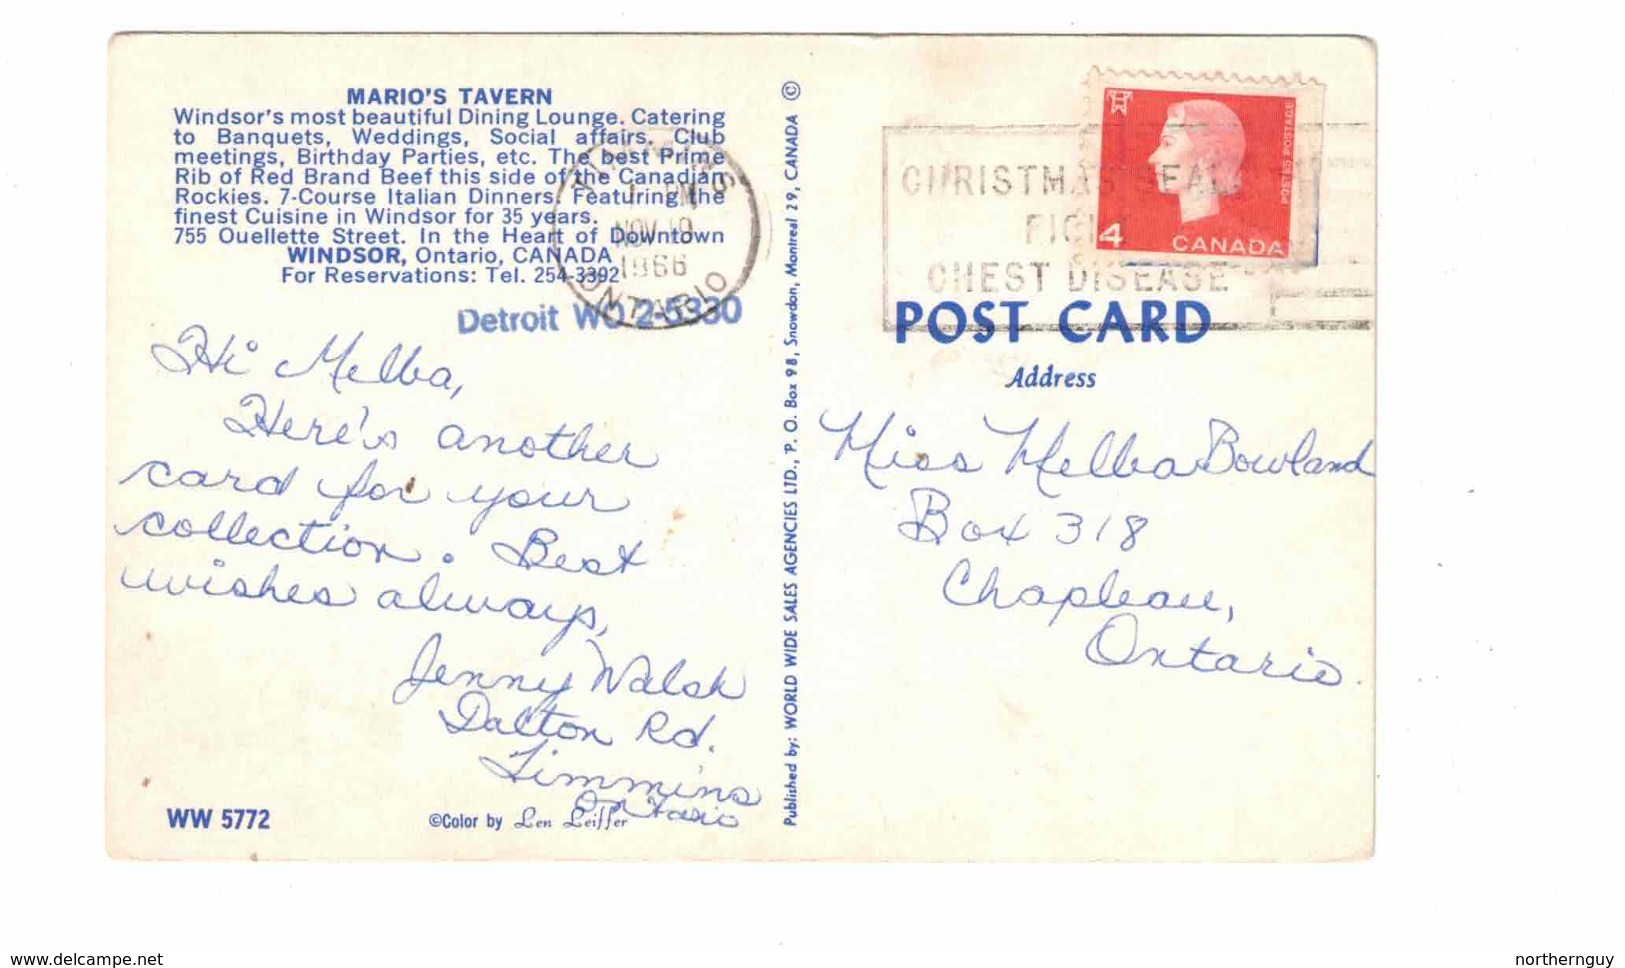 MARIO'S TAVERN
Windsor's most beautiful Dining Lounge. Catering
to Banquets, Weddings, Social affairs. Club
meetings, Birthday Parties, etc. The best Prime
Rib of Red Brand Beef this side of the Canadian
Rockies. 7-Course Italian Dinners. Featuring the
finest Cuisine in Windsor for 35 years.
755 Ouellette Street. In the Heart of Downtown
WINDSOR, Ontario, CANADA
For Reservations: Tel. 254-3392
Detroit WO 2-5330
PM
NOV 18
1966
ONTARIO
Hi Melba,
Here's another
card for your
collection. Best
wishes always,
Jenny Walsh
Dalton Rd.
Timmins
Ontario
WW 5772
©Color by Len Leiffer
Published by: WORLD WIDE SALES AGENCIES LTD., P. O. Box 98, Snowdon, Montreal 29, CANADA ©
CHRISTMAS SEALS
FIGHT
CHEST DISEASE
POSTES POSTAGE
4 CANADA
POST CARD
Address
Miss Melba Bowland
Box 318
Chapleau,
Ontario.
www.delcampe.net
northernguy